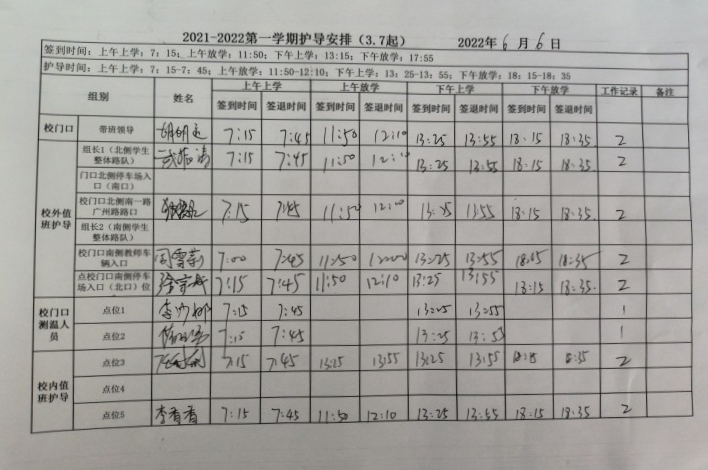 2021-2022第一学期护导安排（3.7起） 2022年6月6日
签到时间：上午上学：7：15；上午放学：11:50；下午上学：13:15；下午放学：17:55
护导时间：上午上学：7：15-7：45；上午放学：11:50-12:10；下午上学：13：25-13：55；下午放学：18：15-18：35
组别 姓名 上午上学 上午放学 下午上学 下午放学 工作记录 备注
签到时间 签退时间 签到时间 签退时间 签到时间 签退时间 签到时间 签退时间
校门口 带班领导 7:15 7:45 11:50 12:10 13:25 13:55 18:15 18:35 2
校外值班护导
组长1（北侧学生整体路队） 7:15 7:45 11:50 12:10 13:25 13:55 18:15 18:35 2
门口北侧停车场入口（南口）
校门口北侧南一路广州路路口 7:15 7:45 11:50 13:25 13:55 18:15 18:35 2
组长2（南侧学生整体路队）
校门口南侧教师车辆入口 7:00 7:45 11:50 13:25 13:55 18:15 18:35 2
点校门口南侧停车场入口（北口）位 7:15 7:45 11:50 12:10 13:25 13:55 18:15 18:35 2
校门口测温人员
点位1 7:15 7:45 13:25 13:55 1
点位2 7:15 7:45 13:25 1
校内值班护导
点位3 7:15 7:45 13:25 13:55 13:25 13:55 18:35 2
点位4
点位5 李香香 7:15 7:45 11:50 12:10 13:25 13:55 18:15 18:35 2